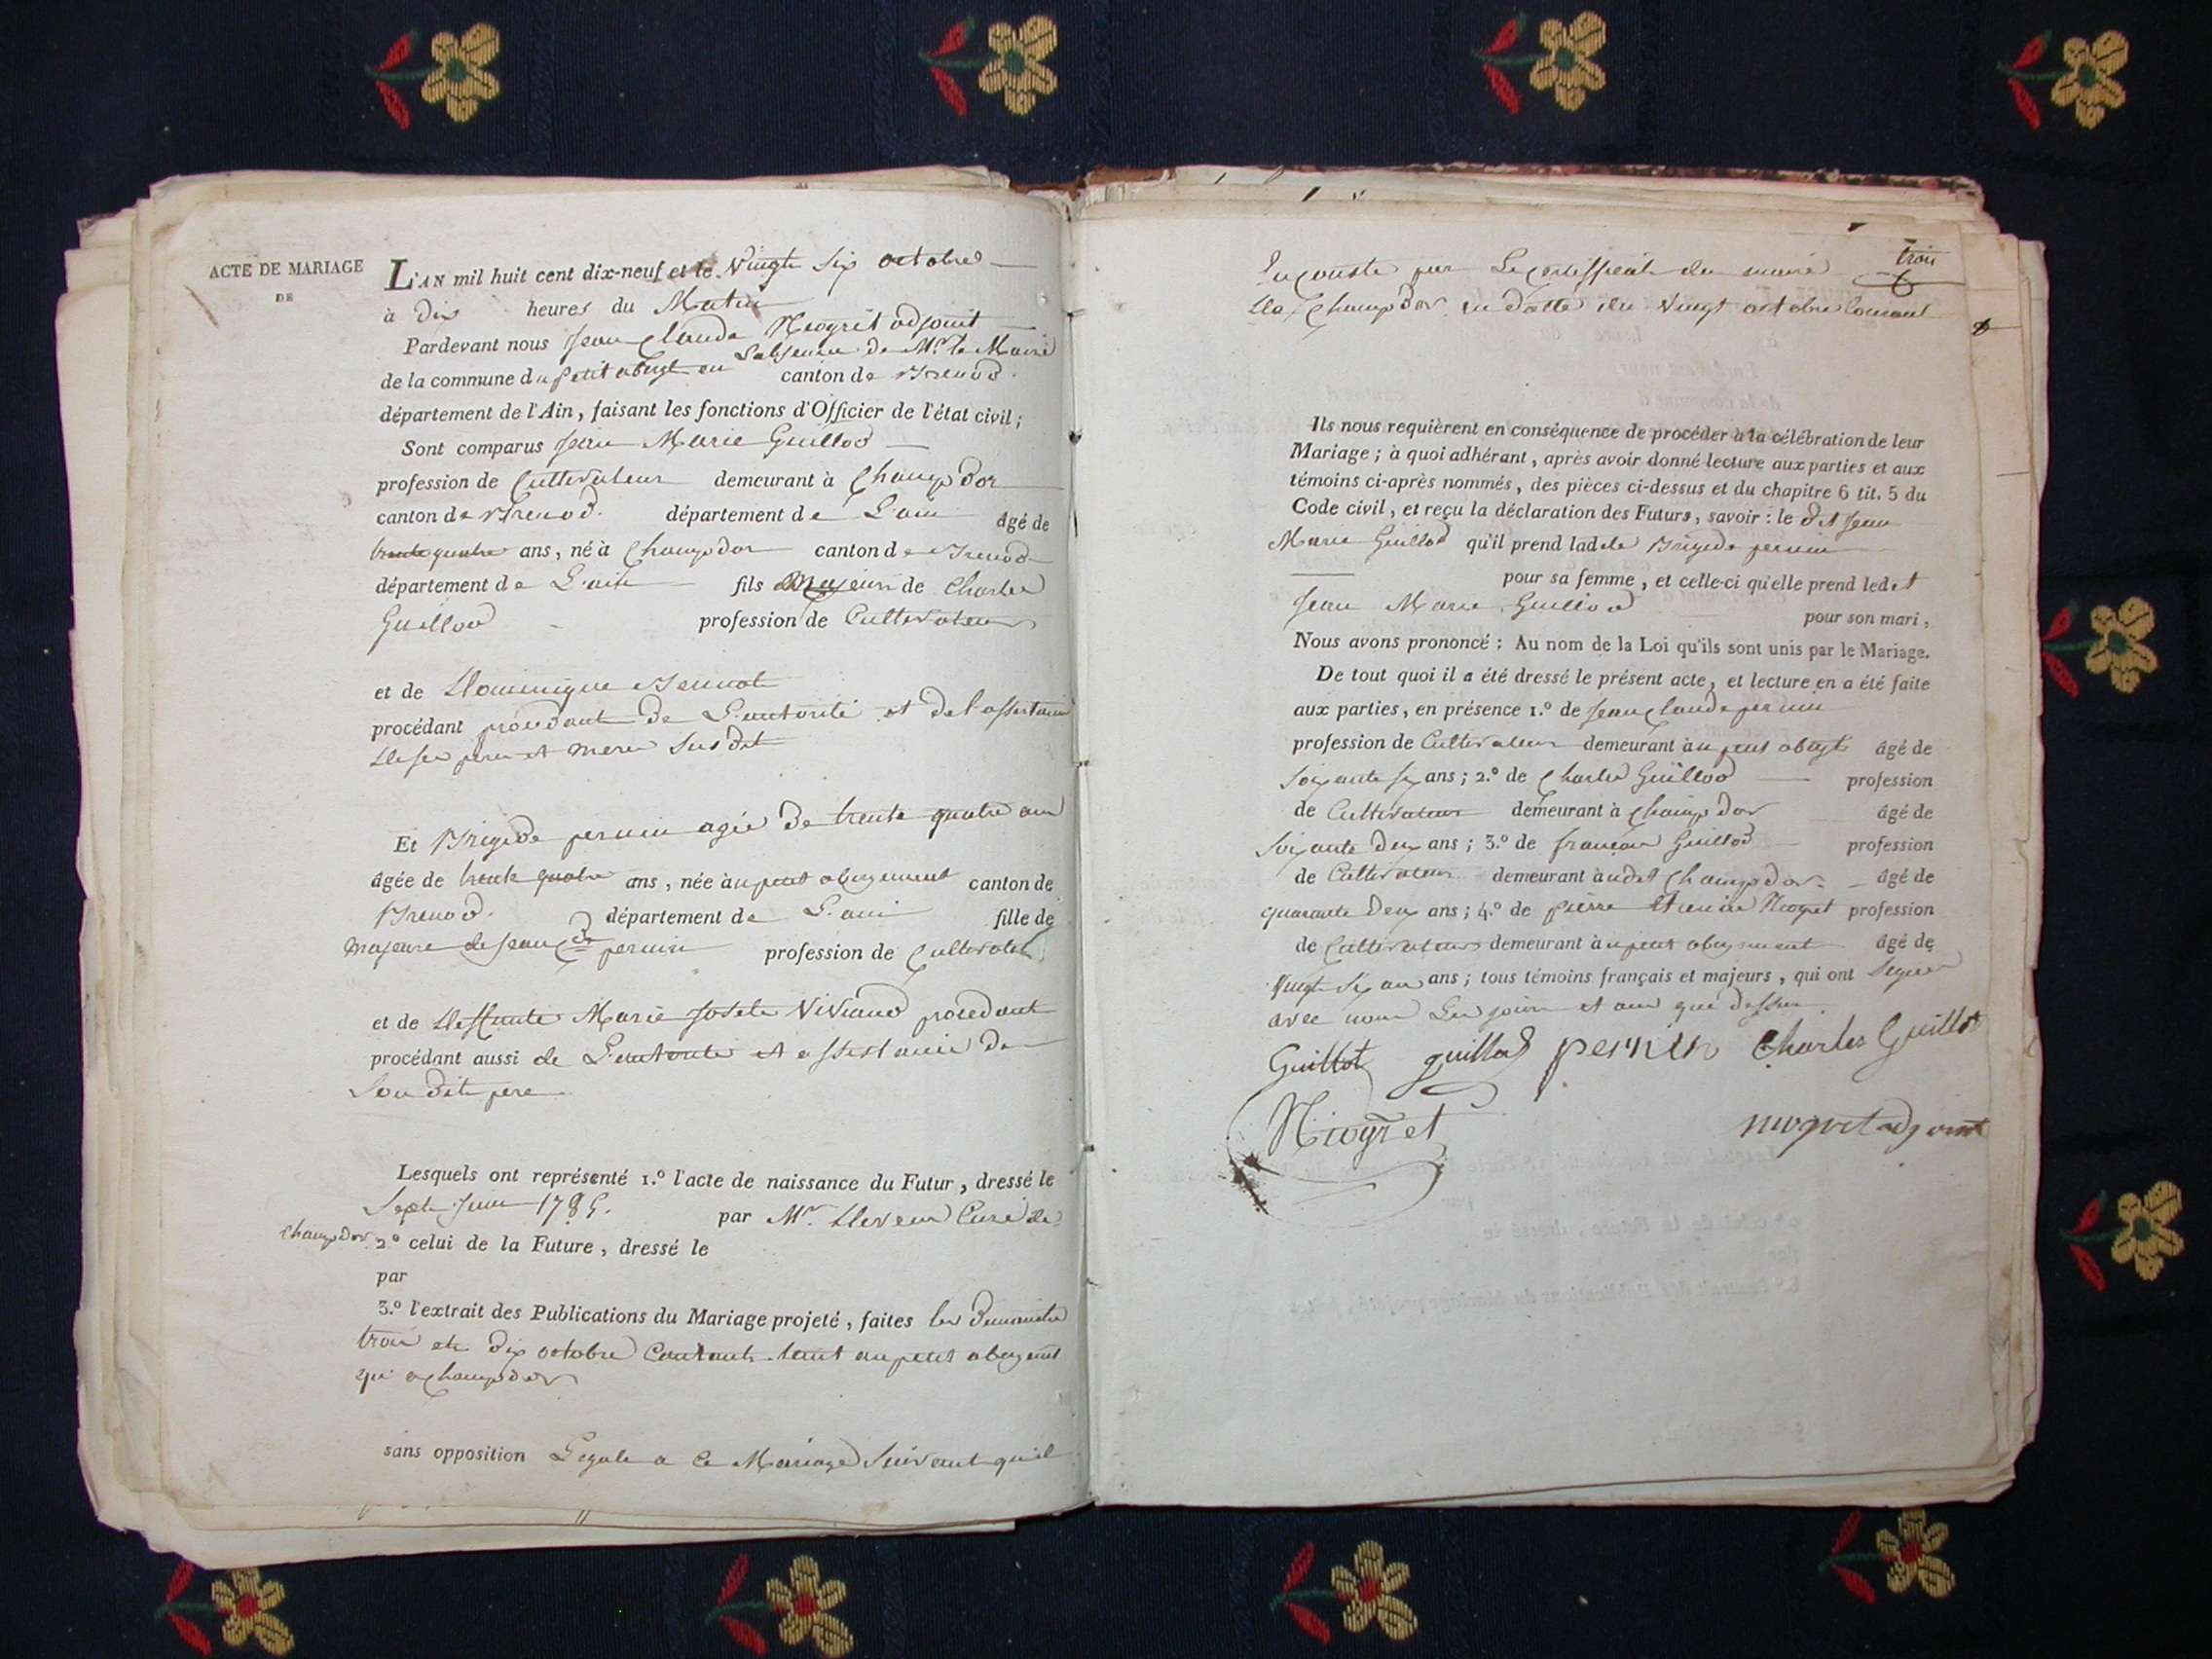 ACTE DE MARIAGE
DE
L'AN mil huit cent dix-neuf et le Vingt Six octobre
à Dix heures du Matin
Pardevant nous Jean Claude Niogret adjoint
de la commune du petit abergt en Labsence de Mr. le Maire canton de Brenod
département de l'Ain, faisant les fonctions d'Officier de l'état civil;
Sont comparus Jean Marie Guillod
profession de Cultivateur demeurant à Champdor
canton de Brenod département de L'ain âgé de
trente quatre ans, né à Champdor canton de Brenod
département de L'ain fils Majeur de Charles
Guillod profession de Cultivateur
et de
procédant procedant de L'autorité et de l'assistance
de ses pere et mere Susdit
Et Brigide perrin agée de trente quatre ans
âgée de trente quatre ans, née au petit abergement canton de
Brenod département de L'ain fille de
majeure de Jean Cde perrin profession de Cultivateur
et de Marie Viviand procedant
procédant aussi de L'autorité et assistance de
Son dit pere
Lesquels ont représenté 1.º l'acte de naissance du Futur, dressé le
Sept Juin 1785. par Mr. Curé de
Champdor 2º celui de la Future, dressé le
par
3.º l'extrait des Publications du Mariage projeté, faites les Dimanche
trois et dix octobre Courant tant au petit abergemt
qu'a Champdor
sans opposition Legale a ce Mariage Suivant qu'il
trois
en conste par Le certifficat du maire
de Champdor en datte du Vingt octobre Courant
Ils nous requièrent en conséquence de procéder à la célébration de leur
Mariage; à quoi adhérant, après avoir donné lecture aux parties et aux
témoins ci-après nommés, des pièces ci-dessus et du chapitre 6 tit. 5 du
Code civil, et reçu la déclaration des Futurs, savoir: le dit Jean
Marie Guillod qu'il prend ladite Brigide perrin
pour sa femme, et celle-ci qu'elle prend ledit
Jean Marie Guillod pour son mari,
Nous avons prononcé: Au nom de la Loi qu'ils sont unis par le Mariage.
De tout quoi il a été dressé le présent acte, et lecture en a été faite
aux parties, en présence 1.º de Jean Claude perrin
profession de Cultivateur demeurant au petit abergt âgé de
Soixante six ans; 2.º de Charles Guillod profession
de Cultivateur demeurant à Champdor âgé de
Soixante deux ans; 3.º de françois Guillod profession
de Cultivateur demeurant audit Champdor âgé de
quarante deux ans; 4.º de pierre Etienne Niogret profession
de Cultivateur demeurant au petit abergement âgé de
Vingt Six ans ans; tous témoins français et majeurs, qui ont Signé
avec nous Les jour et an que dessus.
Guillot guillod perrin Charles Guillot
Niogret niogret adjoint